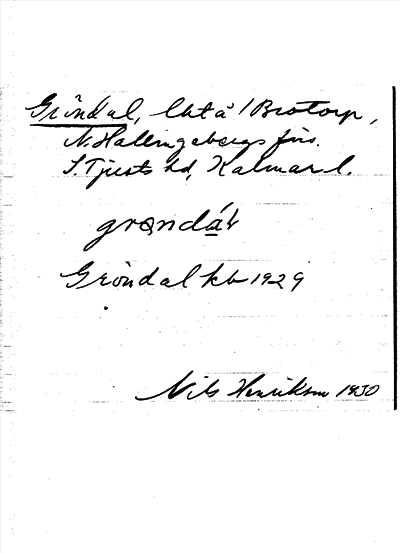 Gröndal, lht å Brotorp,
N. Hallingebergs förs.
S. Tjusts hd, Kalmar l.
grøndáɫ
Gröndal kb 1929
Nils Henrikson 1930